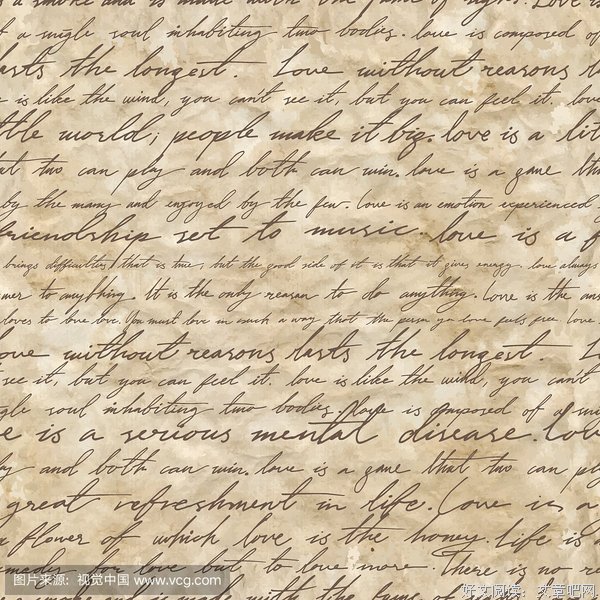 a smoke and is made with the fume of sighs. Love is
of a single soul inhabiting two bodies. love is composed of
lasts the longest. Love without reasons la
e is like the wind, you can't see it, but you can feel it. love
ttle world; people make it big. love is a lit
at two can play and both can win. love is a game th
by the many and enjoyed by the few. Love is an emotion experienced
friendship set to music. love is a f
brings difficulties, that is true; but the good side of it is that it gives energy. love always
wer to anything. It is the only reason to do anything. Love is the ans
loves to love love. You must love in such a way that the person you love feels free. Love
ove without reasons lasts the longest. L
see it, but you can feel it. love is like the wind, you can't
gle soul inhabiting two bodies. love is composed of a sin
e is a serious mental disease. Lov
ay and both can win. love is a game that two can pl
great refreshment in life. Love is a
a flower of which love is the honey. Life is
emedy for love but to love more. There is no re
with the fume of
图片来源：视觉中国 www.vcg.com
好文阅读：文章吧网